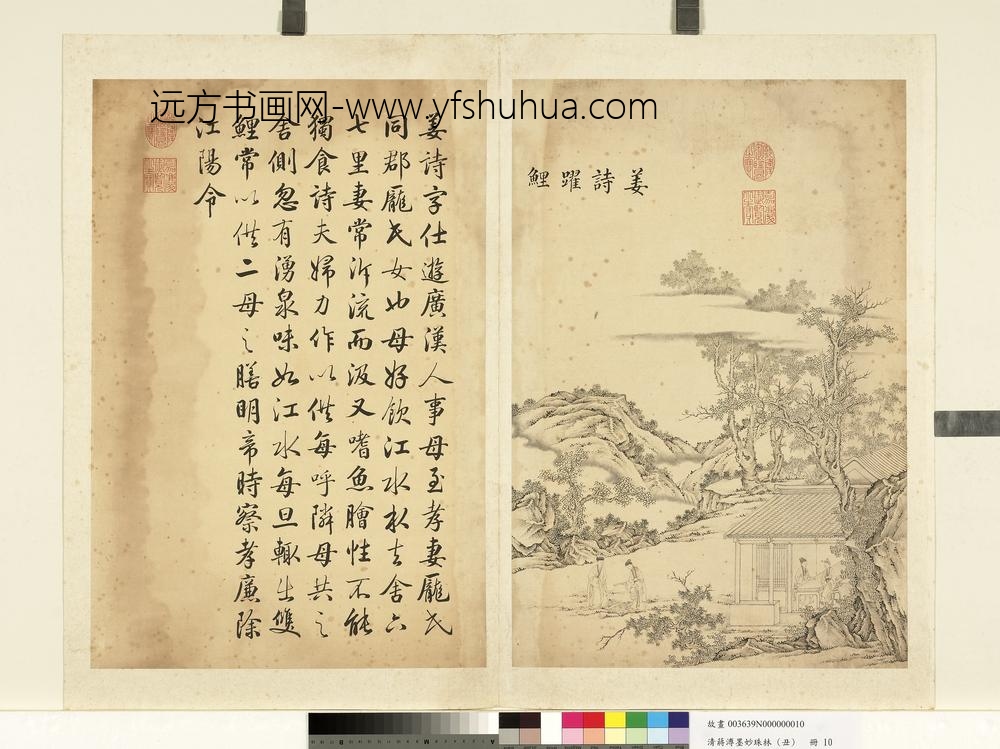 远方书画网-www.yfshuhua.com
姜詩躍鯉
姜詩字仕遊廣漢人事母至孝妻龐氏
同郡龐氏女也母好飲江水水去舍六
七里妻常泝流而汲又嗜魚膾性不能
獨食詩夫婦力作以供每呼隣母共之
舍側忽有湧泉味如江水每旦輒出雙
鯉常以供二母之膳明帝時察孝廉除
江陽令
故畫 003639N000000010
清蔣溥墨妙珠林（丑） 冊 10